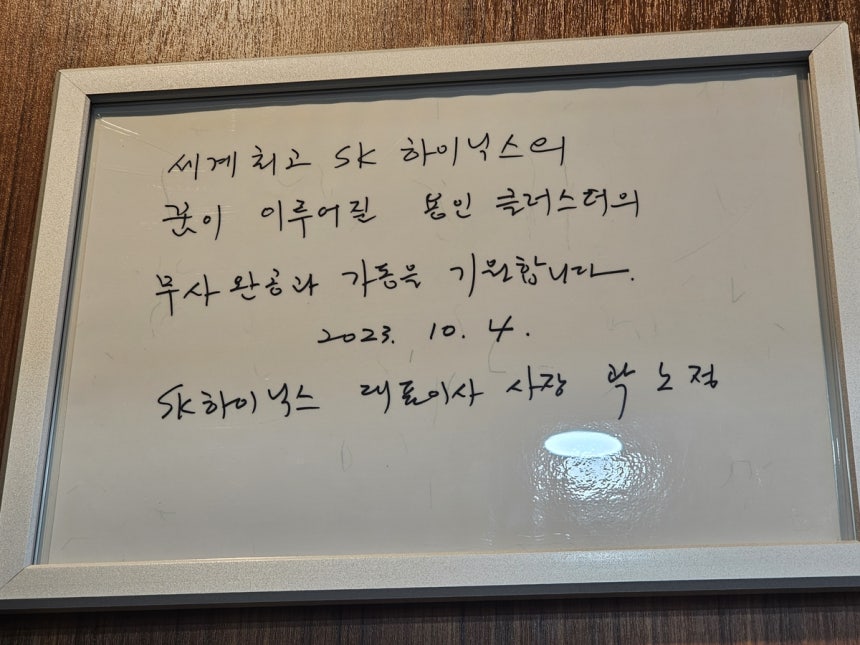 세계최고 SK 하이닉스의
꿈이 이루어질 용인 클러스터의
무사완공과 가동을 기원합니다.
2023. 10. 4.
SK하이닉스 대표이사 사장 곽노정